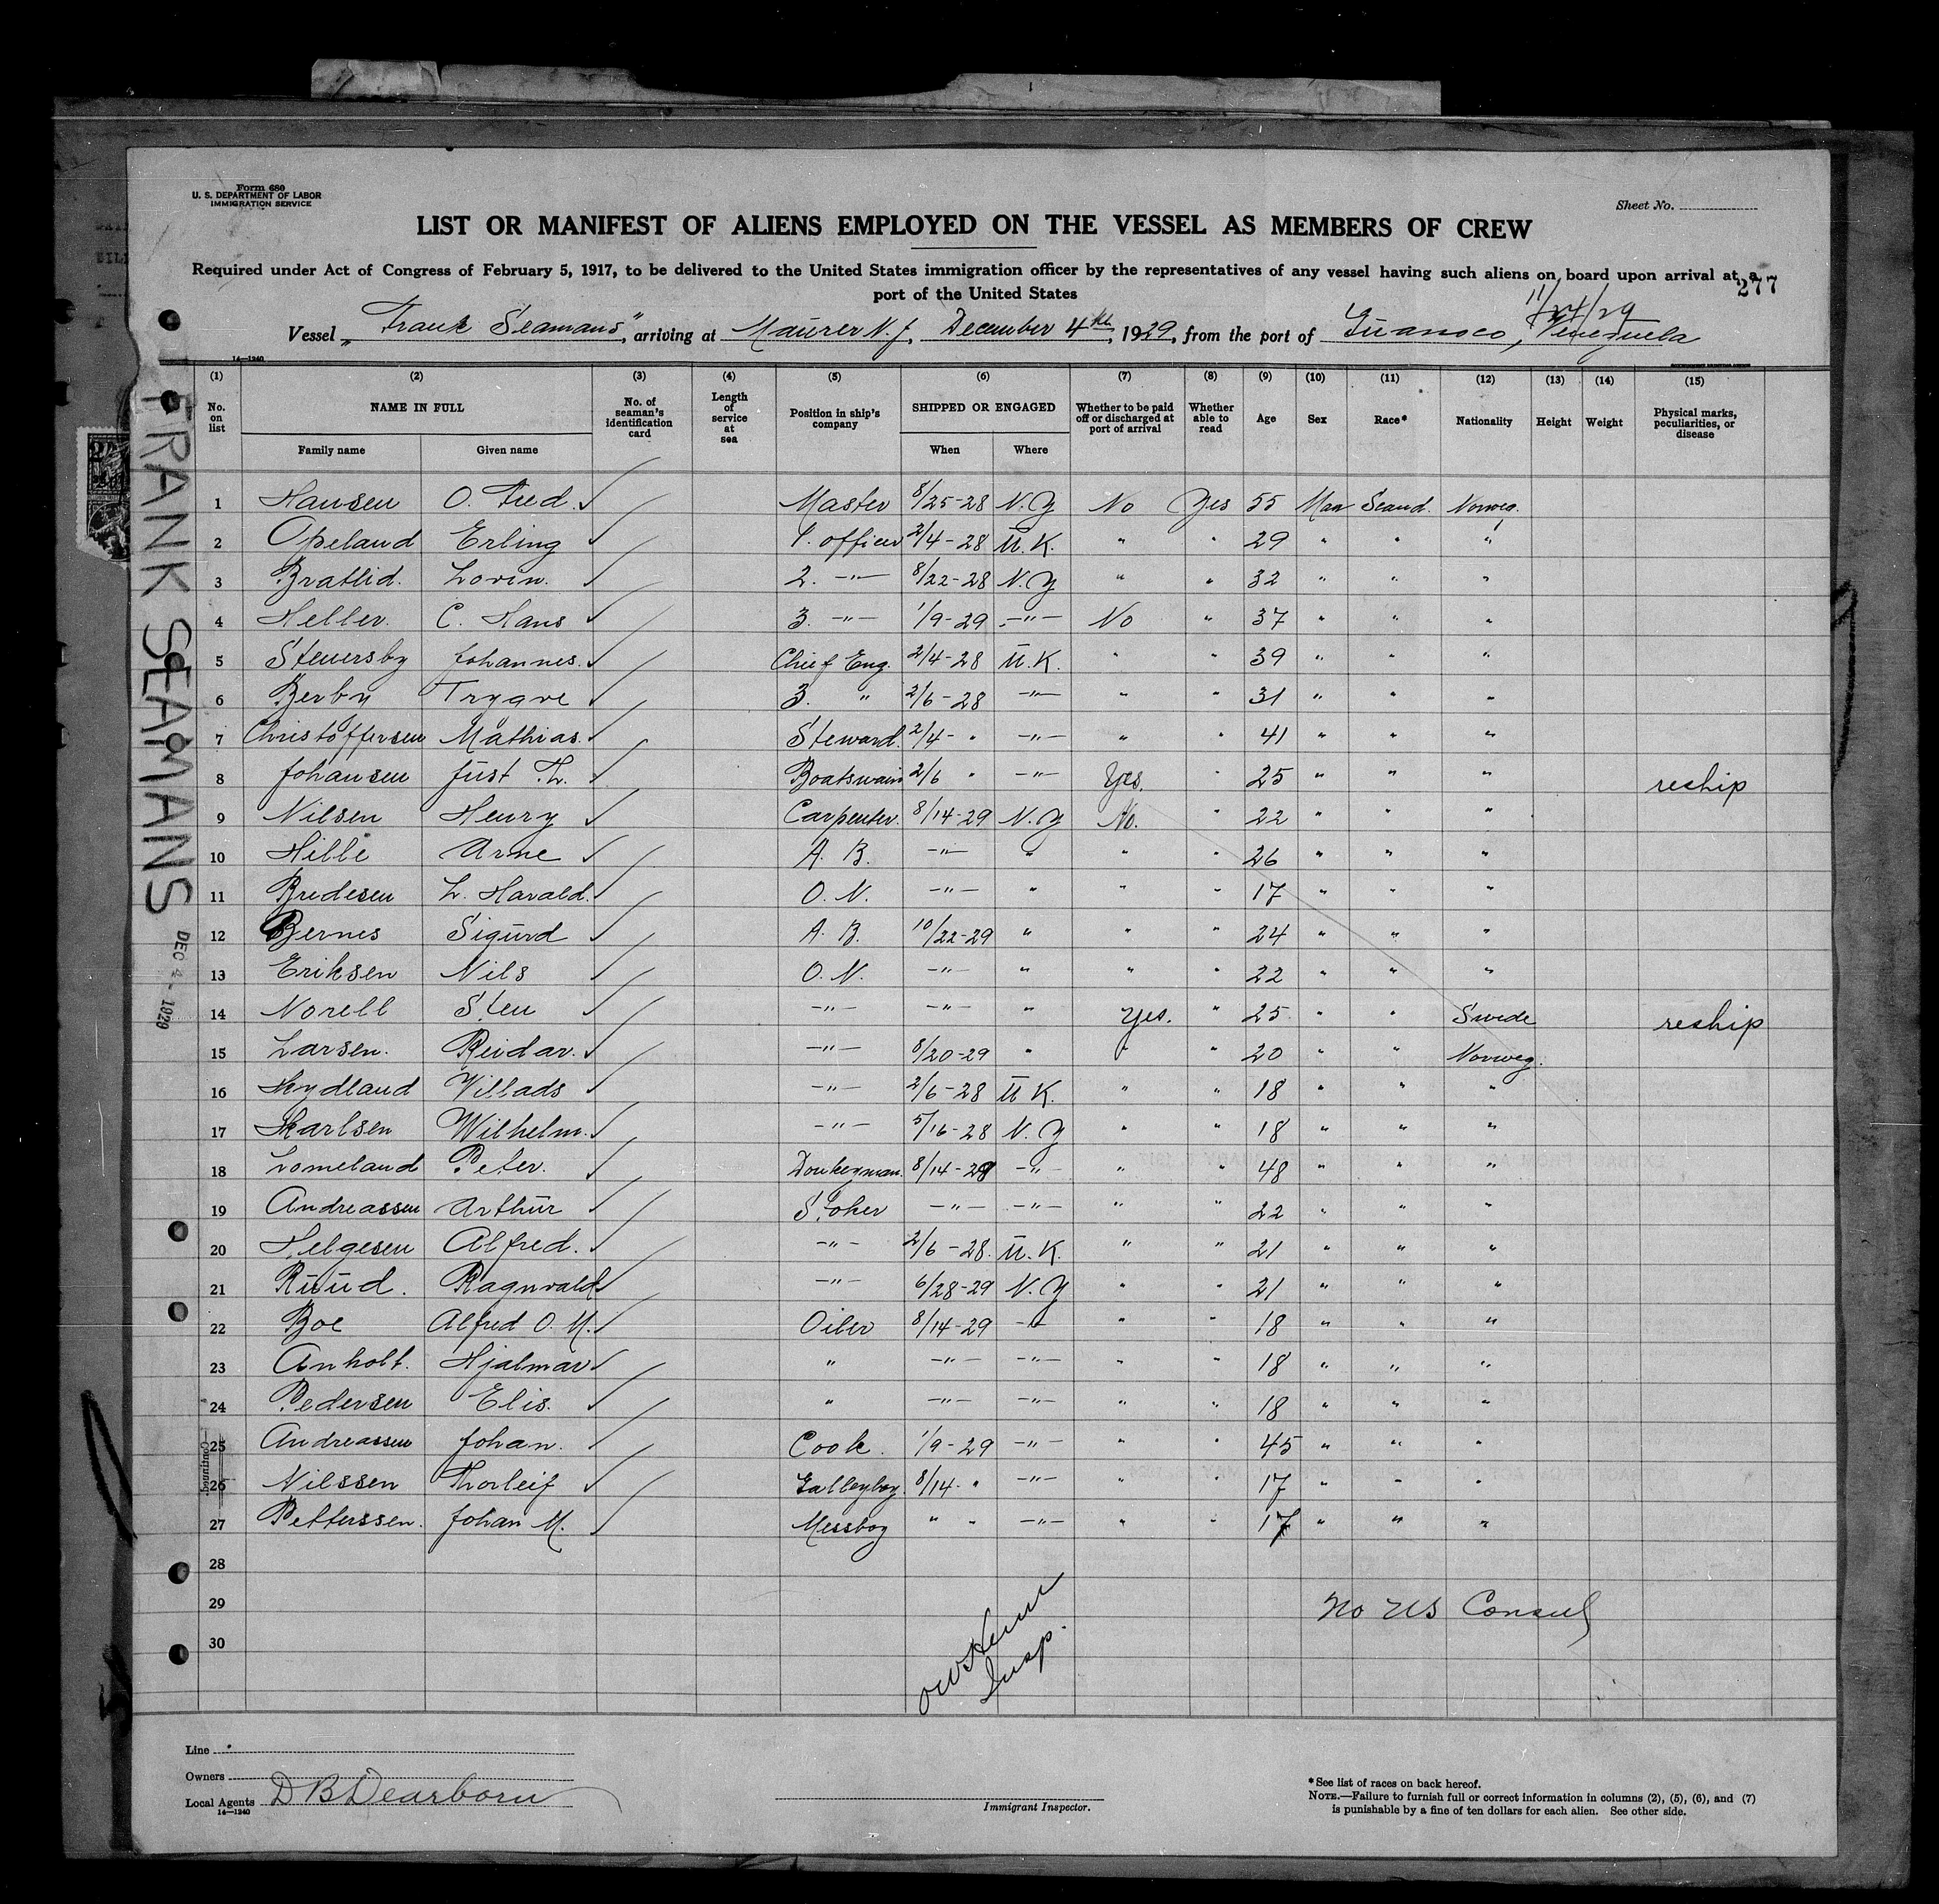 Form 680
U. S. DEPARTMENT OF LABOR
IMMIGRATION SERVICE
Sheet No.
LIST OR MANIFEST OF ALIENS EMPLOYED ON THE VESSEL AS MEMBERS OF CREW
Required under Act of Congress of February 5, 1917, to be delivered to the United States immigration officer by the representatives of any vessel having such aliens on board upon arrival at a
port of the United States
277
11/24/29
Vessel „Frank Seamans", arriving at Maurer N.J., December 4th, 1929, from the port of Guanoco, Venezuela
14—1240
(1) (2) (3) (4) (5) (6) (7) (8) (9) (10) (11) (12) (13) (14) (15)
No. on list NAME IN FULL Family name Given name No. of seaman's identification card Length of service at sea Position in ship's company SHIPPED OR ENGAGED When Where Whether to be paid off or discharged at port of arrival Whether able to read Age Sex Race* Nationality Height Weight Physical marks, peculiarities, or disease
1 Hansen O. Fred. Master 8/25-28 N.Y No Yes 55 Man Scand. Norweg.
2 Opeland Erling 1. officer 2/4-28 U.K. " " 29 " " "
3 Bratlid. Lorin. 2. -"- 8/22-28 N.Y " " 32 " " "
4 Heller. C. Hans 3. -"- 1/9-29 -"- No " 37 " " "
5 Stenersby Johannes. Chief Eng. 2/4-28 U.K. " " 39 " " "
6 Berby Trygve 3. " 2/6-28 -"- " " 31 " " "
7 Christoffersen Mathias. Steward. 2/4- " -"- " " 41 " " "
8 Johansen Just Th. Boatswain 2/6 " -"- Yes. " 25 " " " reship
9 Nilsen Henry Carpenter. 8/14-29 N.Y No. " 22 " " "
10 Hille Arne A. B. -"- " " " 26 " " "
11 Bredesen L. Harald. O. N. -"- " " " 17 " " "
12 Bernes Sigurd A. B. 10/22-29 " " " 24 " " "
13 Eriksen Nils O. N. -"- " " " 22 " " "
14 Norell Sten -"- -"- " Yes. " 25 " " Swede reship
15 Larsen. Reidar. -"- 8/20-29 " " " 20 " " Norweg.
16 Hydland Villads -"- 2/6-28 U K. " " 18 " " "
17 Karlsen Wilhelm. -"- 5/16-28 N.Y " " 18 " " "
18 Lomeland Peter. Donkeyman. 8/14-29 -"- " " 48 " " "
19 Andreassen Arthur Stoker -"- -"- " " 22 " " "
20 Helgesen Alfred. -"- 2/6-28. U.K. " " 21 " " "
21 Ruud. Ragnvald -"- 6/28-29 N.Y " " 21 " " "
22 Boe Alfred O. M. Oiler 8/14-29 -"- " " 18 " " "
23 Anholt. Hjalmar " -"- -"- " " 18 " " "
24 Pedersen Elis. " -"- -"- " " 18 " " "
25 Andreassen Johan. Cook. 1/9-29 -"- " " 45 " " "
26 Nilssen Thorleif Galleyboy. 8/14 " -"- " " 17 " " "
27 Petterssen. Johan M. Messboy " " -"- " " 17 " " "
28
29 No US Consul
30
Insp.
FRANK SEAMANS
DEC 4 - 1929
Continued.
Line
Owners
Local Agents D B Dearborn
14—1240
Immigrant Inspector.
*See list of races on back hereof.
NOTE.—Failure to furnish full or correct information in columns (2), (5), (6), and (7)
is punishable by a fine of ten dollars for each alien. See other side.